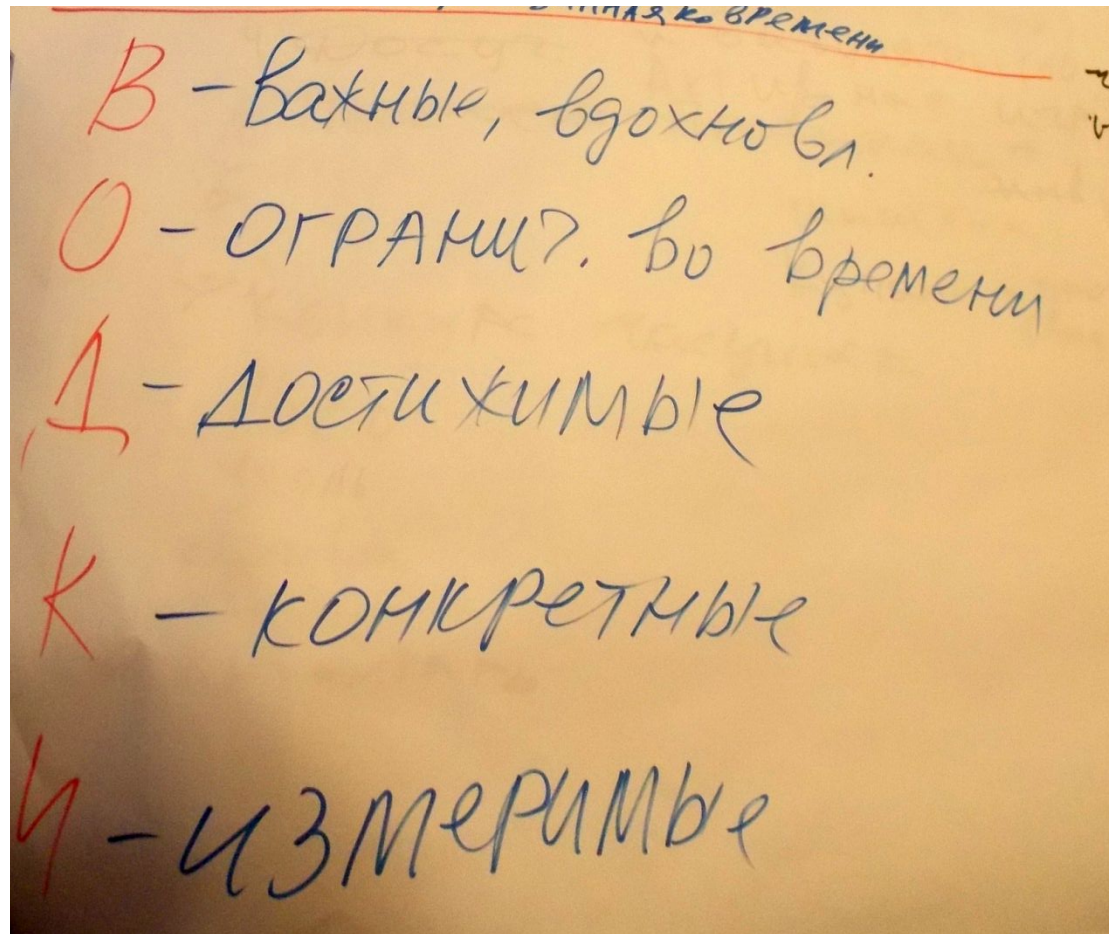 ко времени
В - Важные, вдохновл.
О - ОГРАНИЧ. во времени
Д - Достижимые
К - конкретные
И - измеримые